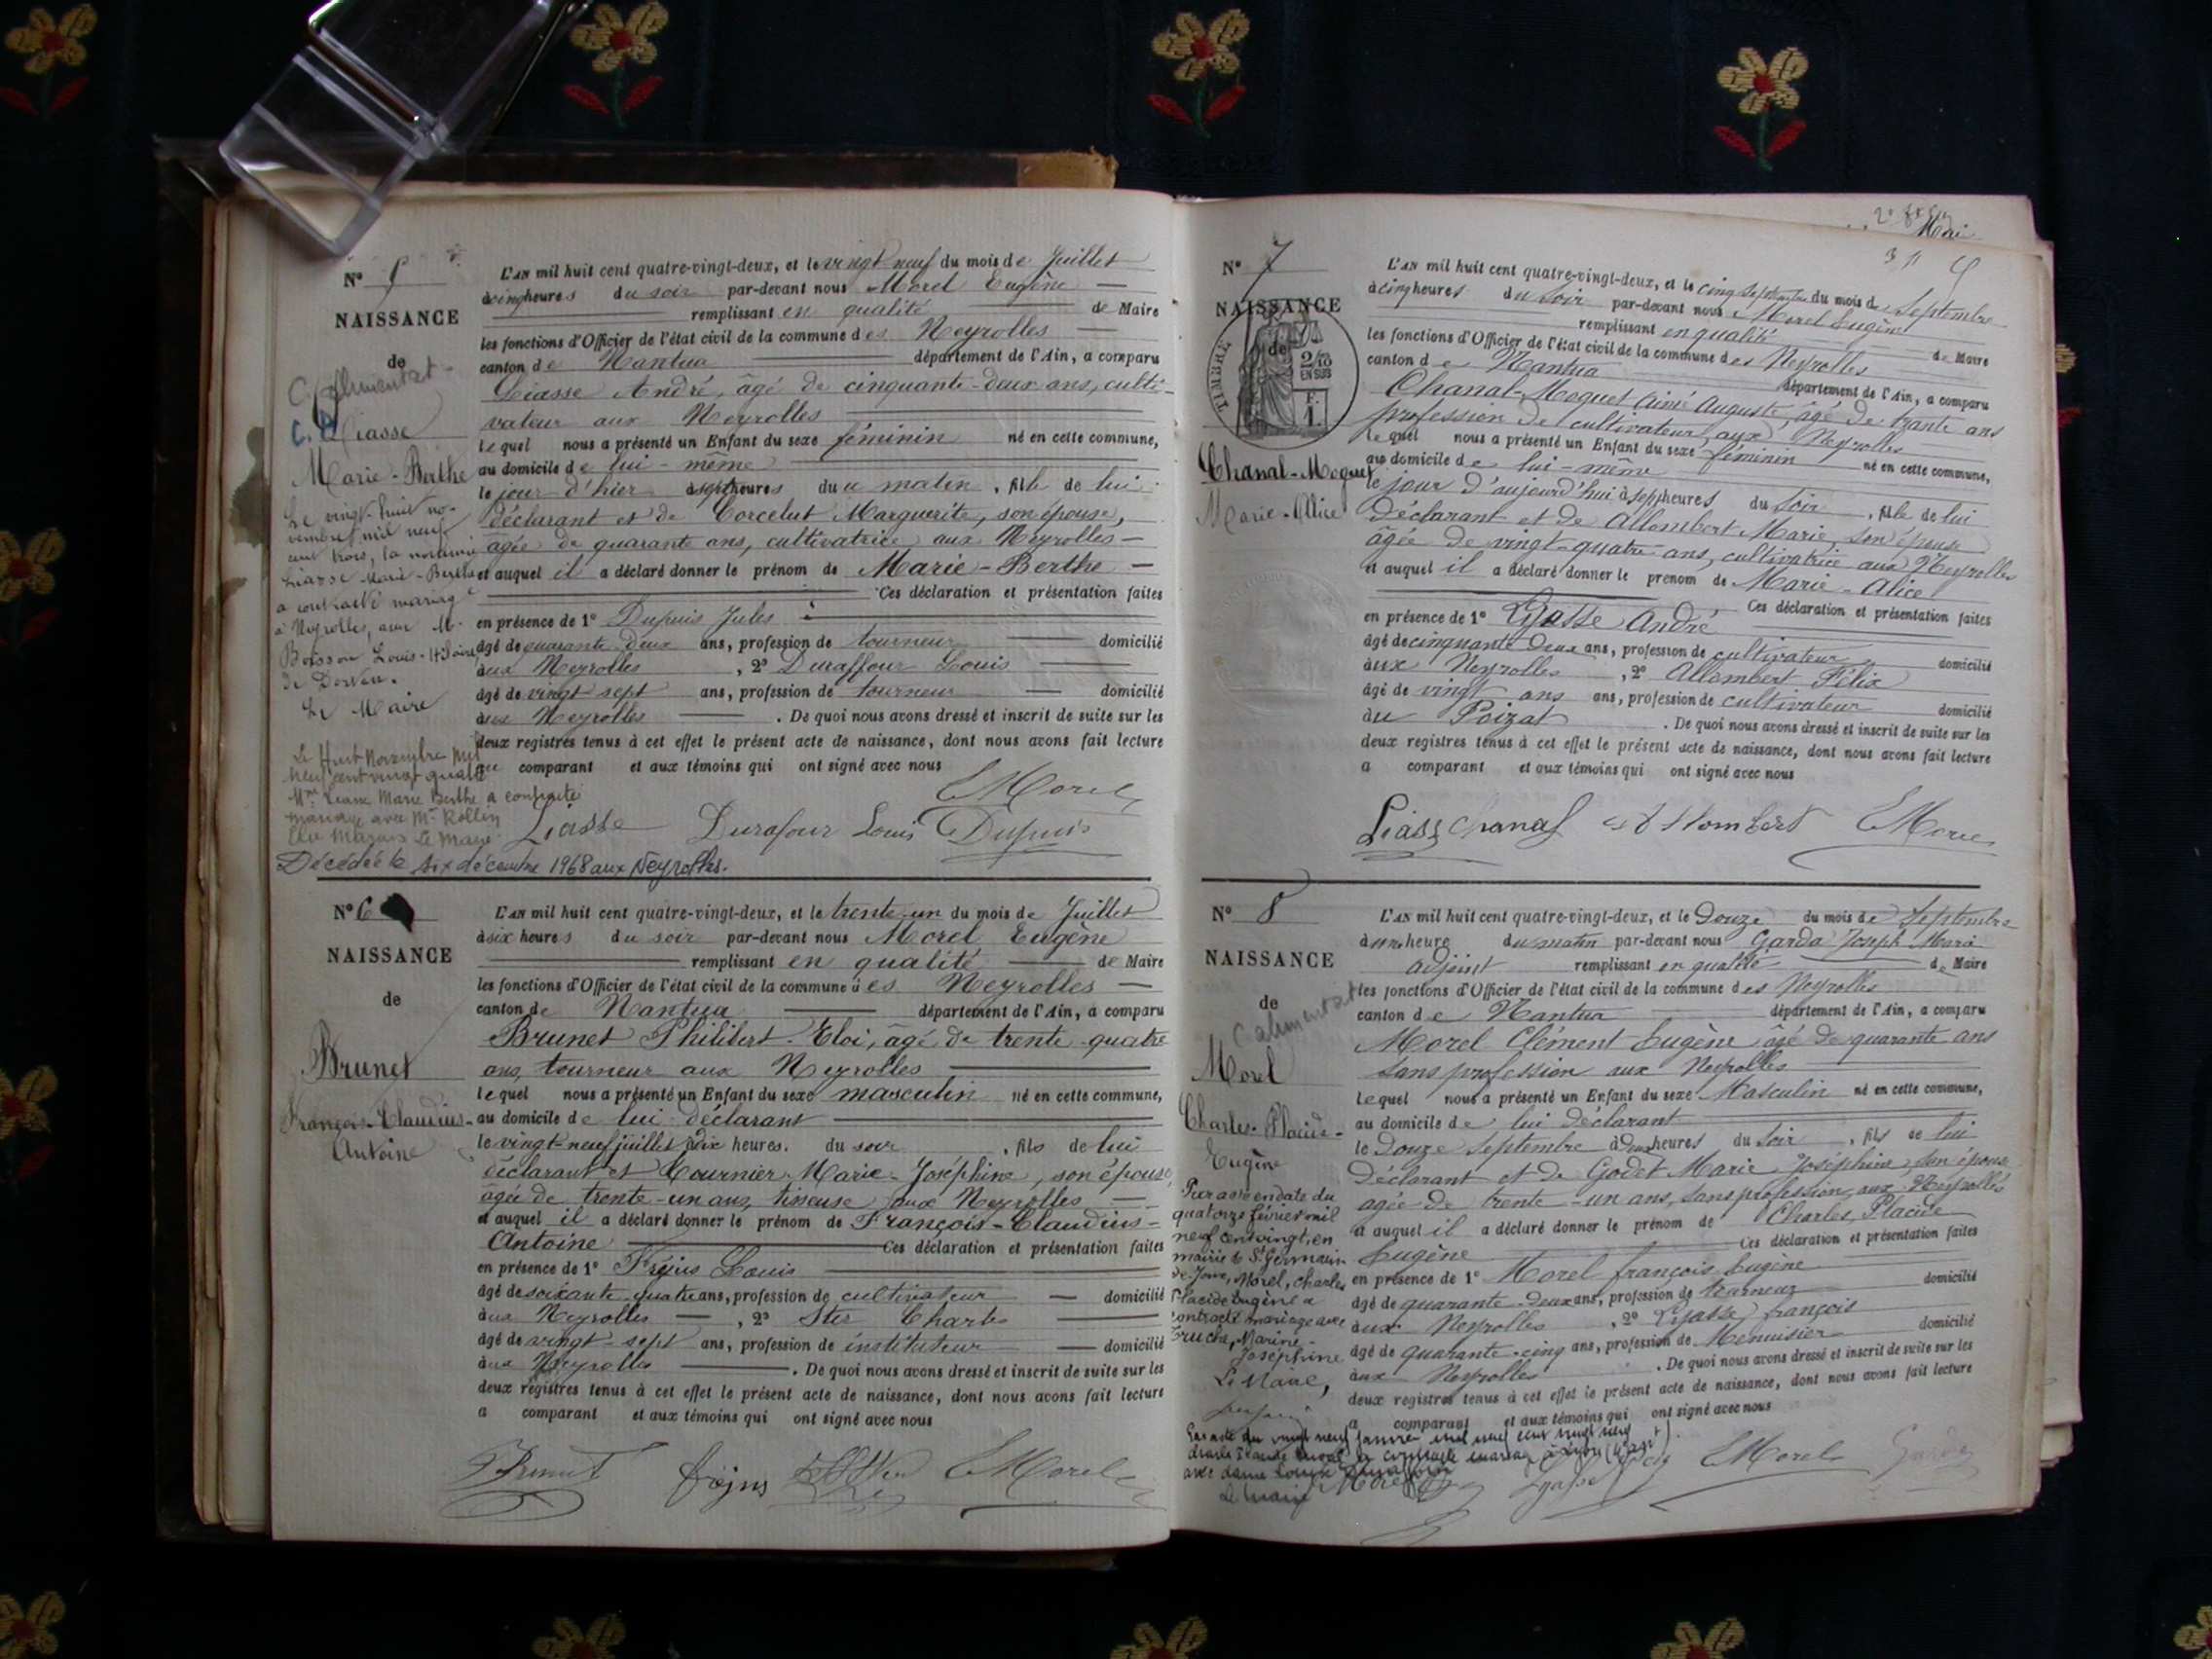 N° 5
NAISSANCE
de
C. Alimentat
Liasse
Marie-Berthe
Le vingt-huit no-
vembre mil neuf
cent trois, la nommée
Liasse Marie-Berthe
a contracté mariage
à Neyrolles, avec M.
Louis-Hilaire
de
Le Maire
Le Huit Novembre Mil
neuf cent vingt quatre
Mme Liasse Marie Berthe a contracté
mariage avec Mr Rollin
Le Maire
Décédée le six décembre 1968 aux Neyrolles.
L'AN mil huit cent quatre-vingt-deux, et le vingt neuf du mois de Juillet
à cinq heures du soir par-devant nous Morel Eugène
remplissant en qualité de Maire
les fonctions d'Officier de l'état civil de la commune des Neyrolles
canton de Nantua département de l'Ain, a comparu
Liasse André, âgé de cinquante-deux ans, culti-
vateur aux Neyrolles
lequel nous a présenté un Enfant du sexe féminin né en cette commune,
au domicile de lui-même
le jour d'hier à sept heures du matin, fille de lui
déclarant et de Corcelut Marguerite, son épouse,
âgée de quarante ans, cultivatrice aux Neyrolles
et auquel il a déclaré donner le prénom de Marie-Berthe
Ces déclaration et présentation faites
en présence de 1° Dupuis Jules
âgé de quarante deux ans, profession de tourneur domicilié
aux Neyrolles, 2° Duraffour Louis
âgé de vingt sept ans, profession de tourneur domicilié
aux Neyrolles. De quoi nous avons dressé et inscrit de suite sur les
deux registres tenus à cet effet le présent acte de naissance, dont nous avons fait lecture
au comparant et aux témoins qui ont signé avec nous
EMorel
Liasse Durafour Louis Dupuis
N° 6
NAISSANCE
de
Brunet
François-Claudius-
Antoine
L'AN mil huit cent quatre-vingt-deux, et le trente-un du mois de Juillet
à six heures du soir par-devant nous Morel Eugène
remplissant en qualité de Maire
les fonctions d'Officier de l'état civil de la commune des Neyrolles
canton de Nantua département de l'Ain, a comparu
Brunet Philibert-Eloi, âgé de trente-quatre
ans, tourneur aux Neyrolles
lequel nous a présenté un Enfant du sexe masculin né en cette commune,
au domicile de lui déclarant
le vingt-neuf juillet à dix heures. du soir, fils de lui
déclarant et Cournier Marie-Joséphine, son épouse,
âgée de trente-un ans, tisseuse aux Neyrolles
et auquel il a déclaré donner le prénom de François-Claudius-
Antoine Ces déclaration et présentation faites
en présence de 1° Fréjus Louis
âgé de soixante quatre ans, profession de cultivateur domicilié
aux Neyrolles, 2° Ster Charles
âgé de vingt-sept ans, profession de instituteur domicilié
aux Neyrolles. De quoi nous avons dressé et inscrit de suite sur les
deux registres tenus à cet effet le présent acte de naissance, dont nous avons fait lecture
a comparant et aux témoins qui ont signé avec nous
Brunet fréjus EMorel
N° 7
NAISSANCE
de
TIMBRE
2/10
EN SUS
F.
1.
Chanal-Moquet
Marie-Alice
L'AN mil huit cent quatre-vingt-deux, et le cinq septembre du mois de Septembre
à cinq heures du soir par-devant nous Morel Eugène
remplissant en qualité de Maire
les fonctions d'Officier de l'état civil de la commune des Neyrolles
canton de Nantua département de l'Ain, a comparu
Chanal-Moquet Aimé Auguste, âgé de trente ans
profession de cultivateur, aux Neyrolles
lequel nous a présenté un Enfant du sexe féminin né en cette commune,
au domicile de lui-même
le jour d'aujourd'hui à sept heures du soir, fille de lui
déclarant et de Allombert Marie, son épouse
âgée de vingt-quatre ans, cultivatrice aux Neyrolles
et auquel il a déclaré donner le prénom de Marie-Alice
Ces déclaration et présentation faites
en présence de 1° Lyasse André
âgé de cinquante deux ans, profession de cultivateur domicilié
aux Neyrolles, 2° Allombert Félix
âgé de vingt ans ans, profession de cultivateur domicilié
au Poizat. De quoi nous avons dressé et inscrit de suite sur les
deux registres tenus à cet effet le présent acte de naissance, dont nous avons fait lecture
a comparant et aux témoins qui ont signé avec nous
Liasse Chanal allombert EMorel
N° 8
NAISSANCE
de
C alimentat
Morel
Charles-Placide-
Eugène
Par acte en date du
quatorze février mil
neuf cent vingt, en
mairie de St Germain
de Joux, Morel, Charles
Placide Eugène a
contracté mariage avec
Truche, Marine
Joséphine
Le Maire,
L'AN mil huit cent quatre-vingt-deux, et le Douze du mois de Septembre
à une heure du matin par-devant nous Garda Joseph Marie
adjoint remplissant en qualité de Maire
les fonctions d'Officier de l'état civil de la commune des Neyrolles
canton de Nantua département de l'Ain, a comparu
Morel Clément Eugène âgé de quarante ans
sans profession aux Neyrolles
lequel nous a présenté un Enfant du sexe Masculin né en cette commune,
au domicile de lui déclarant
le Douze Septembre à deux heures du soir, fils de lui
déclarant et de Godet Marie Joséphine, son épouse
agée de trente-un ans, sans profession, aux Neyrolles
et auquel il a déclaré donner le prénom de Charles, Placide
Eugène Ces déclaration et présentation faites
en présence de 1° Morel françois Eugène
âgé de quarante-deux ans, profession de tourneur domicilié
aux Neyrolles, 2° Lyasse françois
âgé de quarante-cinq ans, profession de Menuisier domicilié
aux Neyrolles. De quoi nous avons dressé et inscrit de suite sur les
deux registres tenus à cet effet le présent acte de naissance, dont nous avons fait lecture
a comparant et aux témoins qui ont signé avec nous
Par acte du vingt neuf janvier mil neuf cent vingt neuf
a contracté mariage à Lyon
avec dame Louise
Le maire
Morel Lyasse EMorel Garda